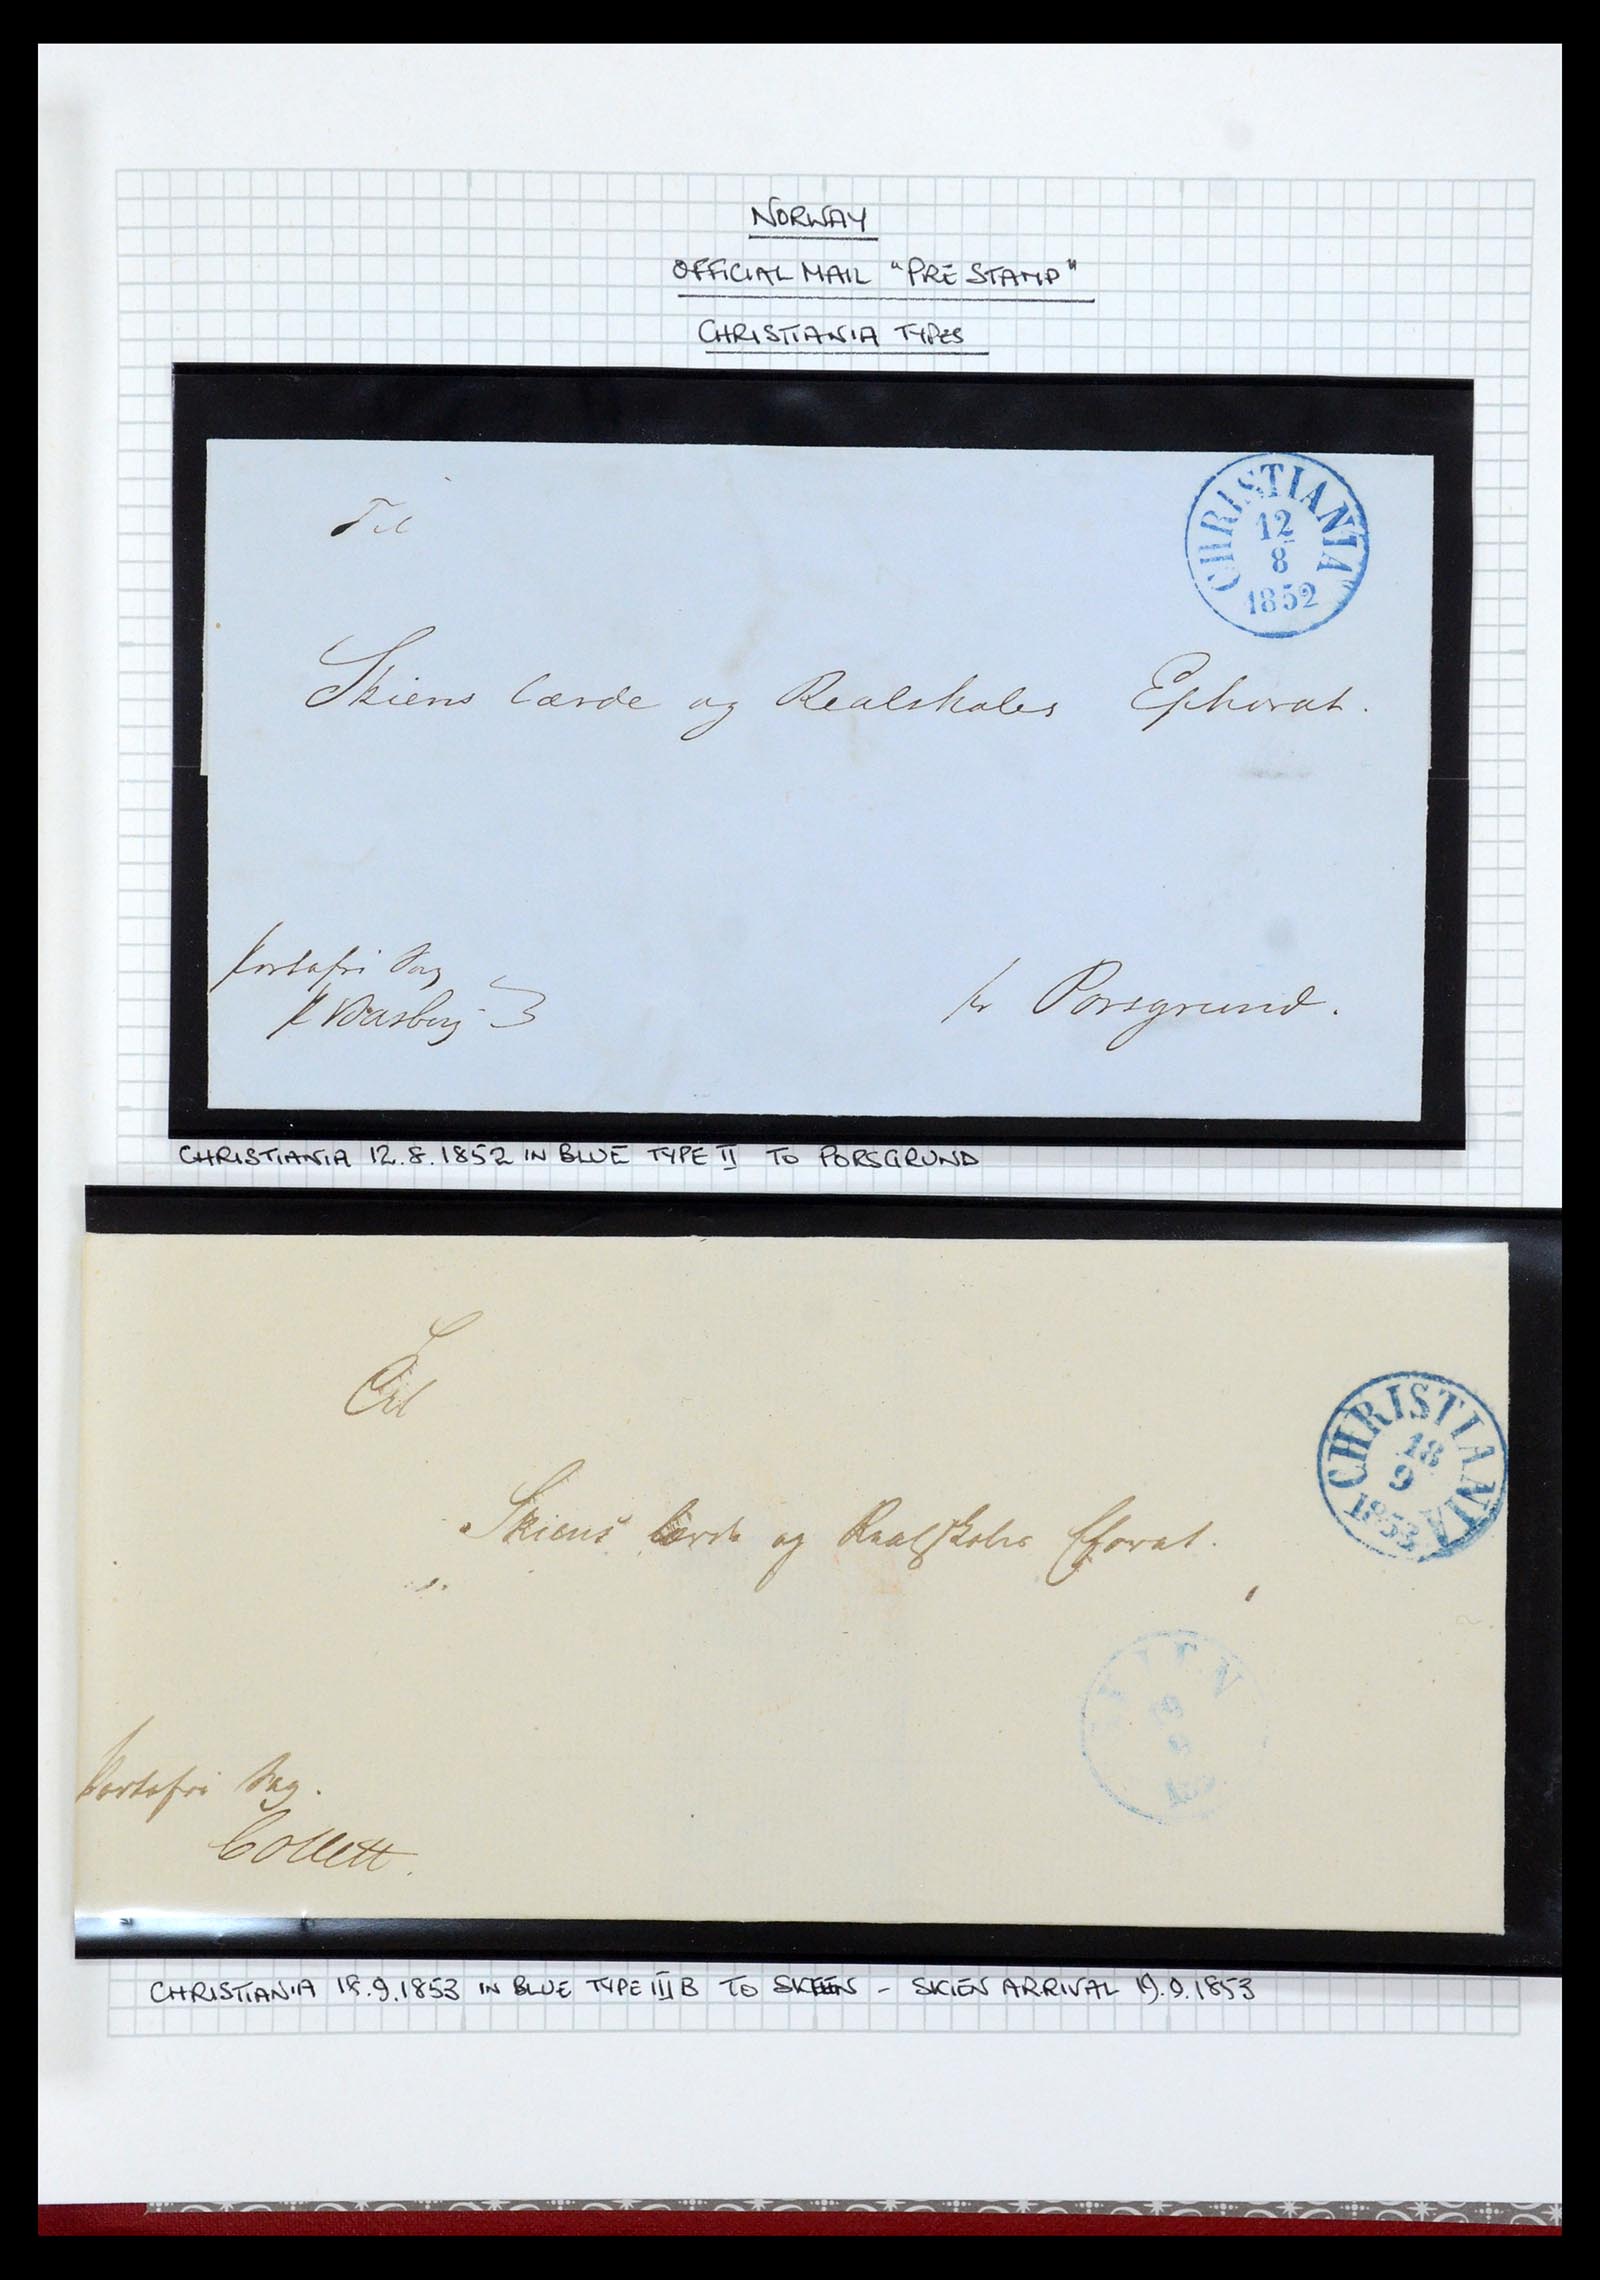 NORWAY
OFFICIAL MAIL "PRE STAMP"
CHRISTIANIA TYPES
CHRISTIANIA
12
8
1852
Til
Skiens lærde og Realskoles Ephorat.
Portofri Sag
pr Porsgrund.
CHRISTIANIA 12.8.1852 IN BLUE TYPE II TO PORSGRUND
CHRISTIANIA
18
9
1853
Til
Skiens lærde og Realskoles Eforat.
SKIEN
19
9
Portofri Sag.
Collett.
CHRISTIANIA 18.9.1853 IN BLUE TYPE III B TO SKIEN - SKIEN ARRIVAL 19.9.1853